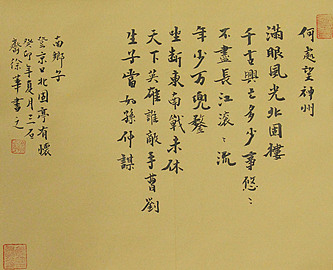 何處望神州
滿眼風光北固樓
千古興亡多少事悠々
不盡長江滾々流
年少万兜鍪
坐斷東南戰未休
天下英雄誰敵手曹劉
生子當如孫仲謀
南鄉子
登京口北固亭有懷
癸卯年夏月三石
齋徐華書之